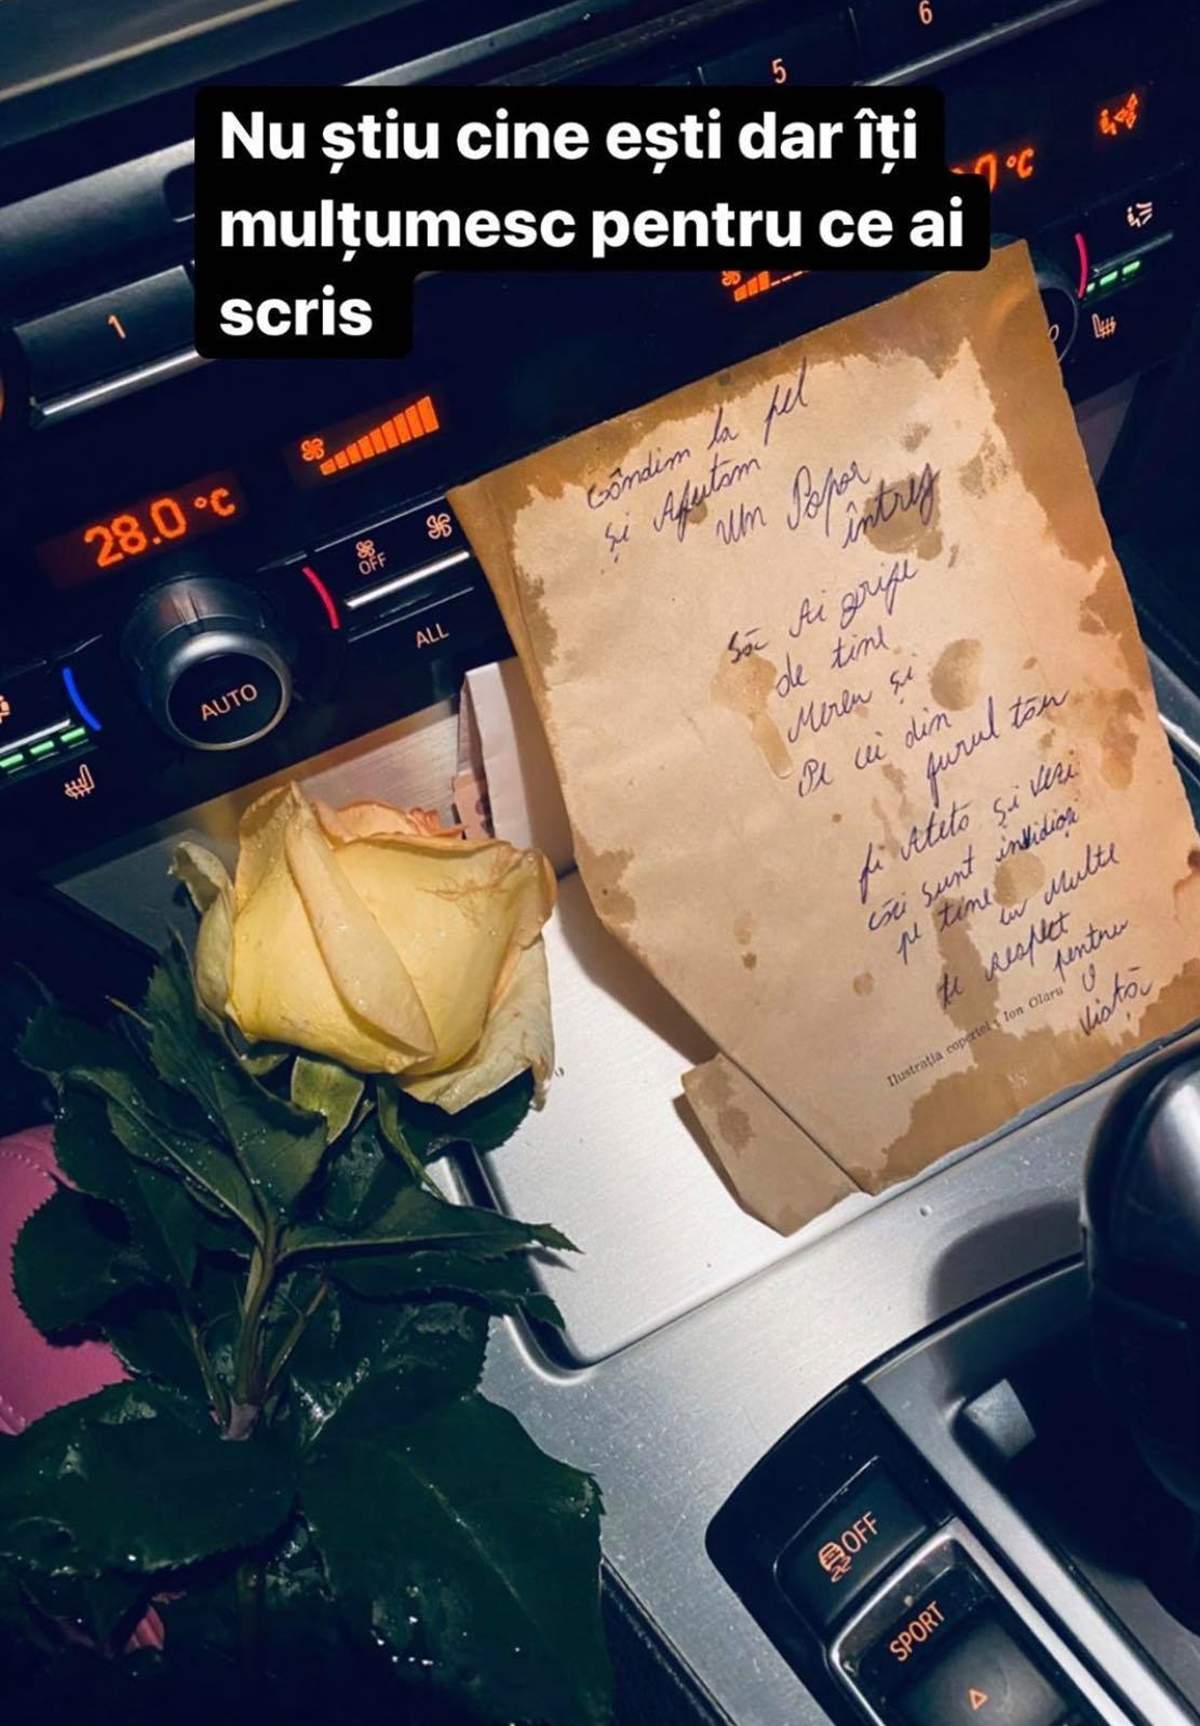 Nu știu cine ești dar îți
mulțumesc pentru ce ai
scris
6
5
1
°C
28.0 °C
OFF
ALL
AUTO
Gândim la fel
și Ajutăm
Un Popor
întreg
Să Ai grije
de tine
Mereu și
Pe cei din
jurul tău
fi Atetă și vezi
căi sunt invidioși
pe tine
cu Multe
te respect
pentru
O
viață
Ilustrația copertei: Ion Olaru
OFF
SPORT